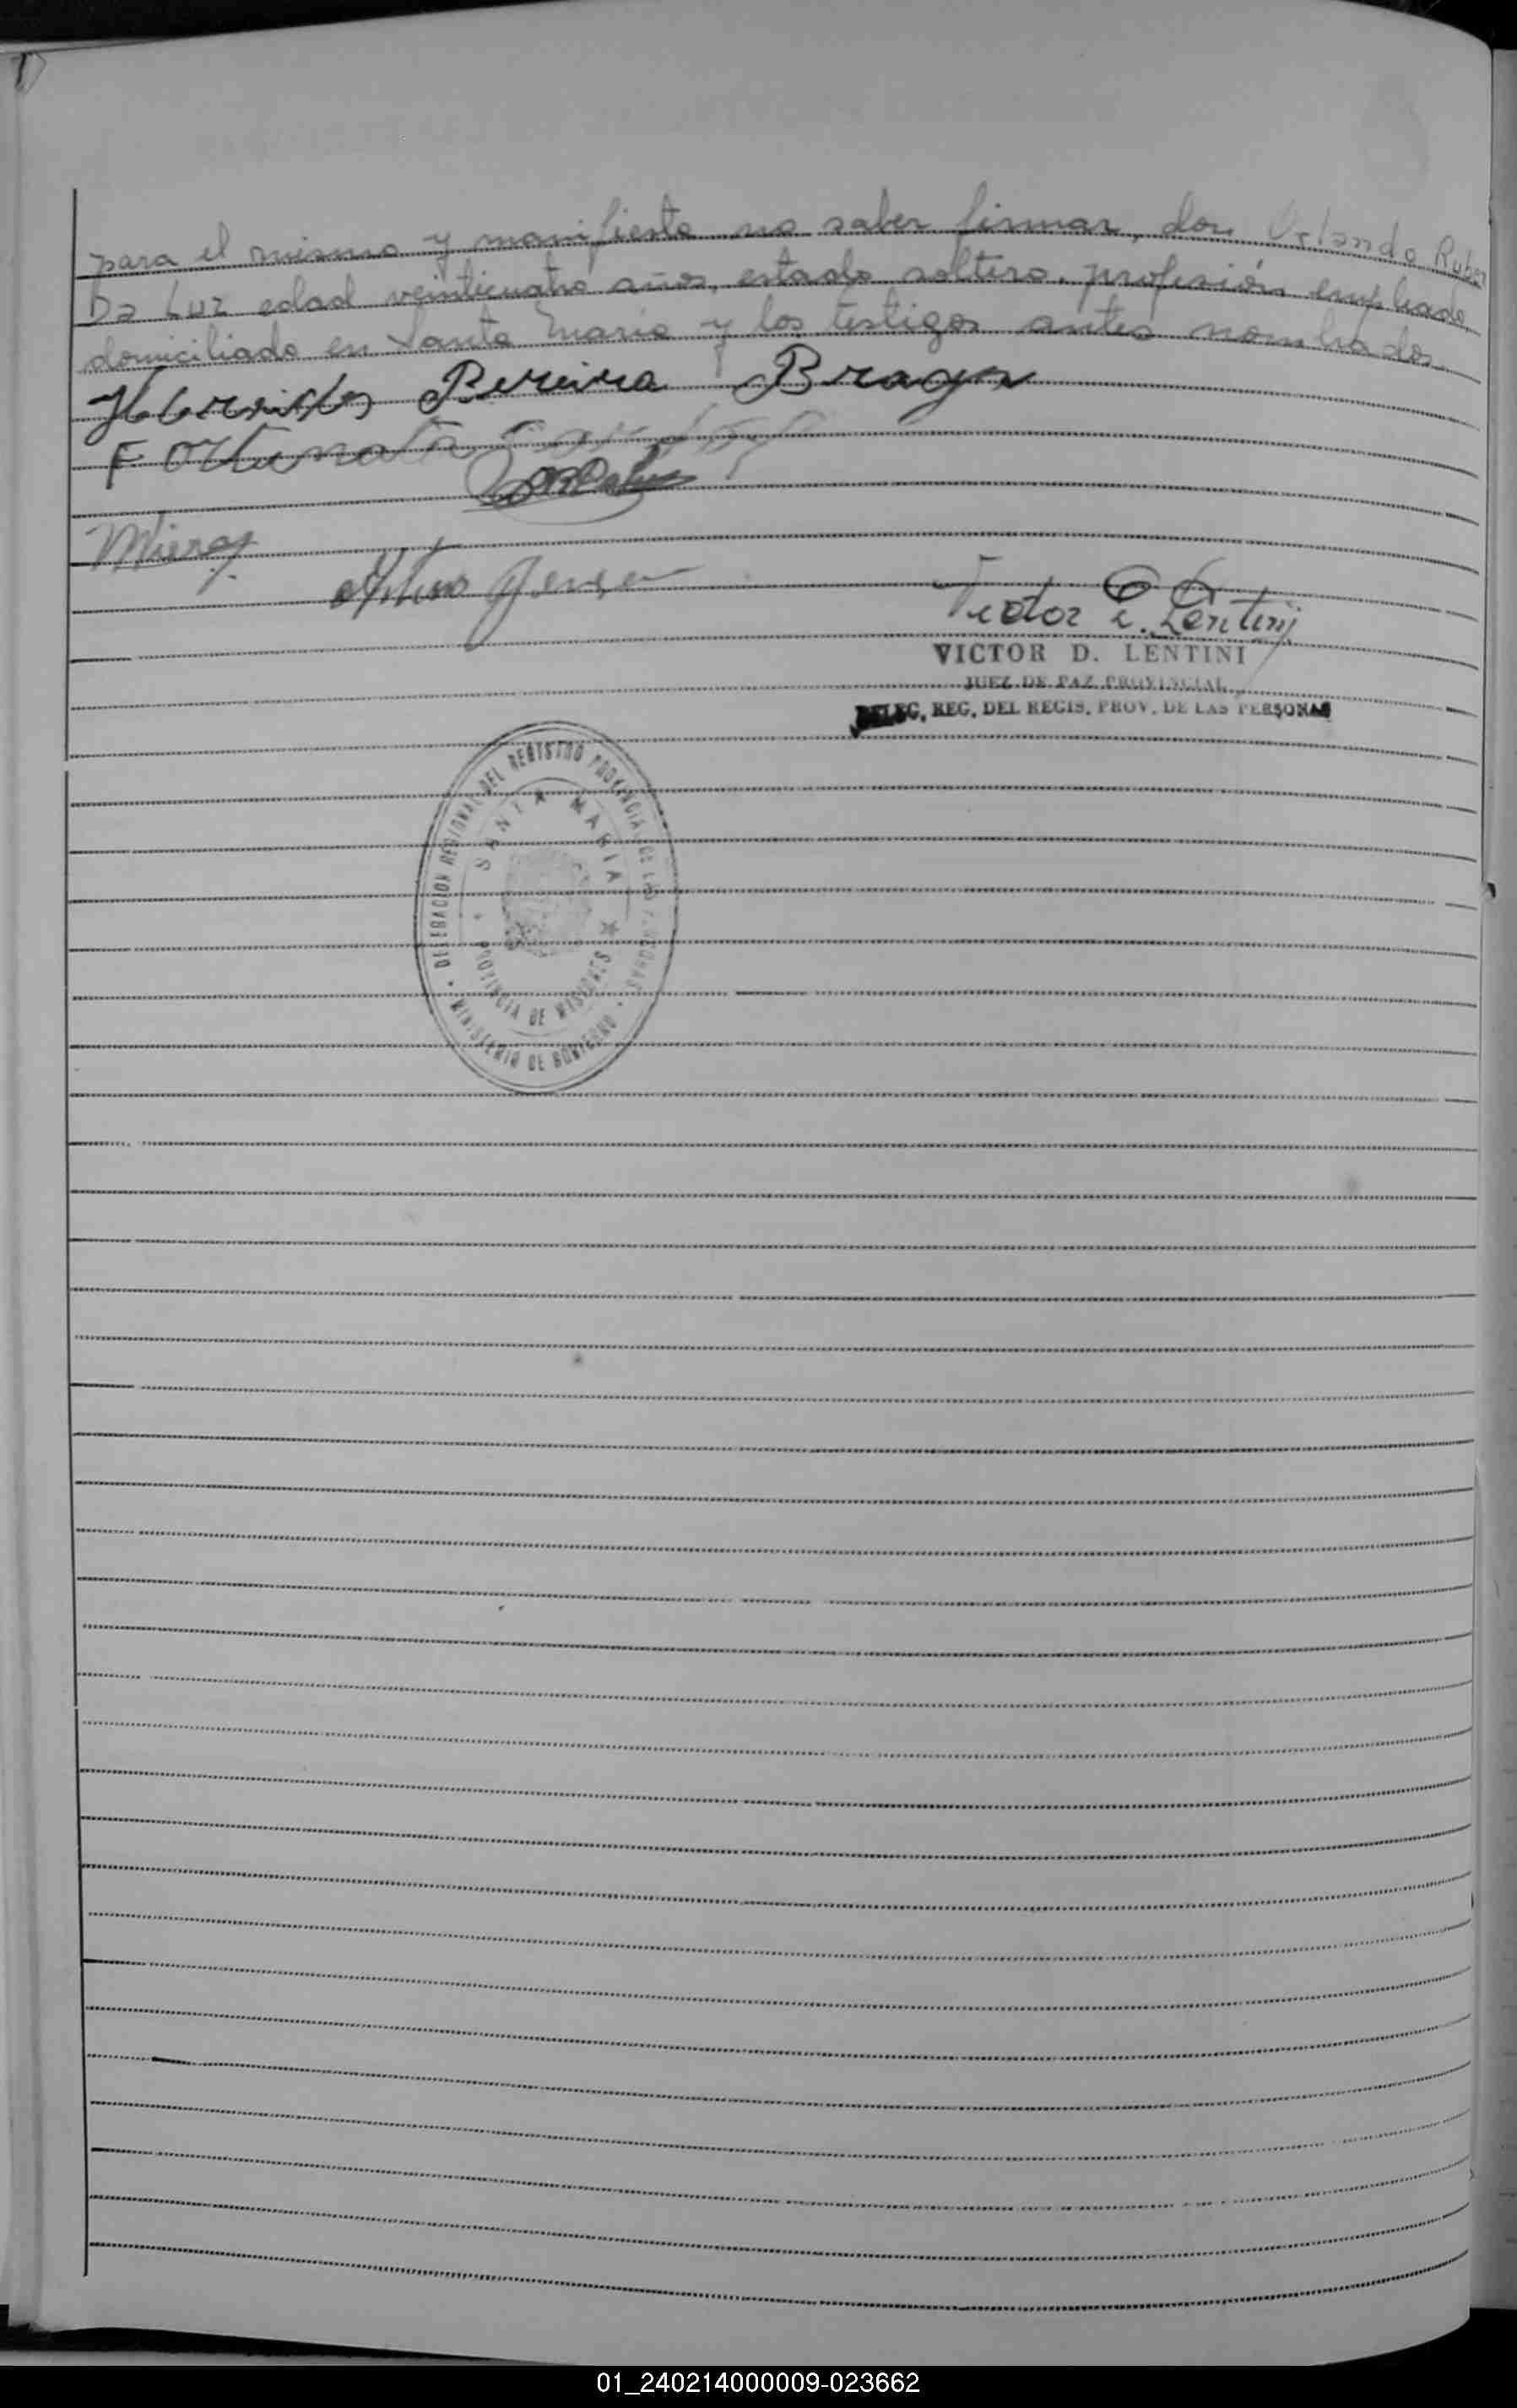 para el mismo y manifiesta no saber firmar, don Orlando Ruben
Da Luz edad veinticuatro años, estado soltero, profesión empleado,
domiciliado en Santa María y los testigos antes nombrados.
Pereira Braga
Fortunato
Arturo
Victor D. Lentini
VICTOR D. LENTINI
JUEZ DE PAZ PROVINCIAL
DELEG. REG. DEL REGIS. PROV. DE LAS PERSONAS
DELEGACION REGIONAL DEL REGISTRO PROVINCIAL DE LAS PERSONAS
SANTA MARIA
PROVINCIA DE MISIONES
MINISTERIO DE GOBIERNO
01_240214000009-023662